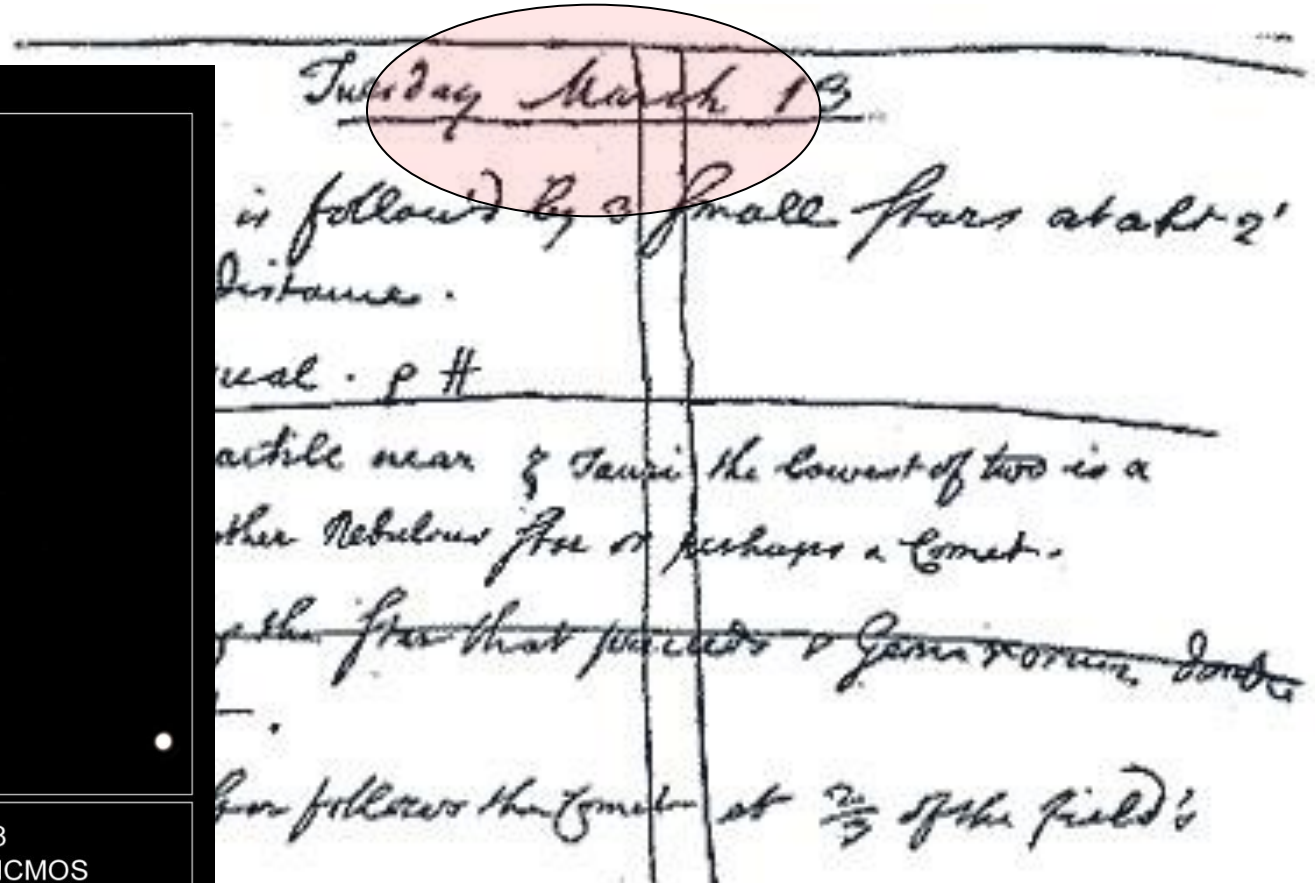 Tuesday March 13
is follow'd by 3 small stars at abt 2'
distance.
ual. p H
artile near ξ Tauri the lowest of two is a
ther Nebulous star or perhaps a Comet.
the star that preceeds Geminorum double
.
follows the Comet at 2/3 of the field's
3
ICMOS